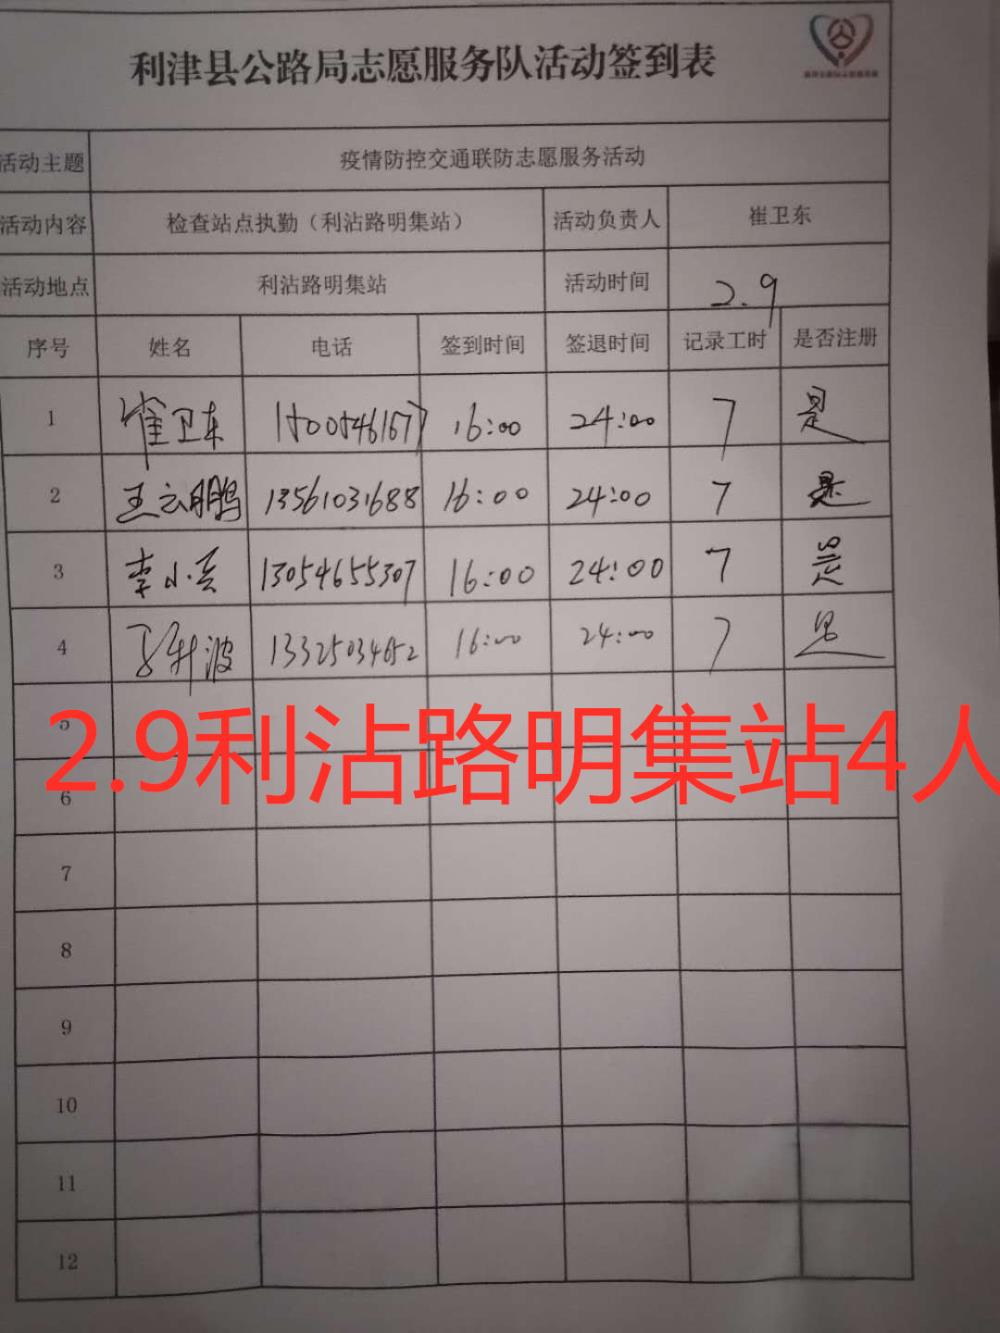 利津县公路局志愿服务队活动签到表
活动主题 疫情防控交通联防志愿服务活动
活动内容 检查站点执勤（利沾路明集站） 活动负责人 崔卫东
活动地点 利沾路明集站 活动时间 2.9
序号 姓名 电话 签到时间 签退时间 记录工时 是否注册
1 崔卫东 16:00 24:00 7 是
2 王云鹏 13561031688 16:00 24:00 7 是
3 李小兵 13054655307 16:00 24:00 7 是
4 16:00 24:00 7 是
5
2.9利沾路明集站4人
6
7
8
9
10
11
12